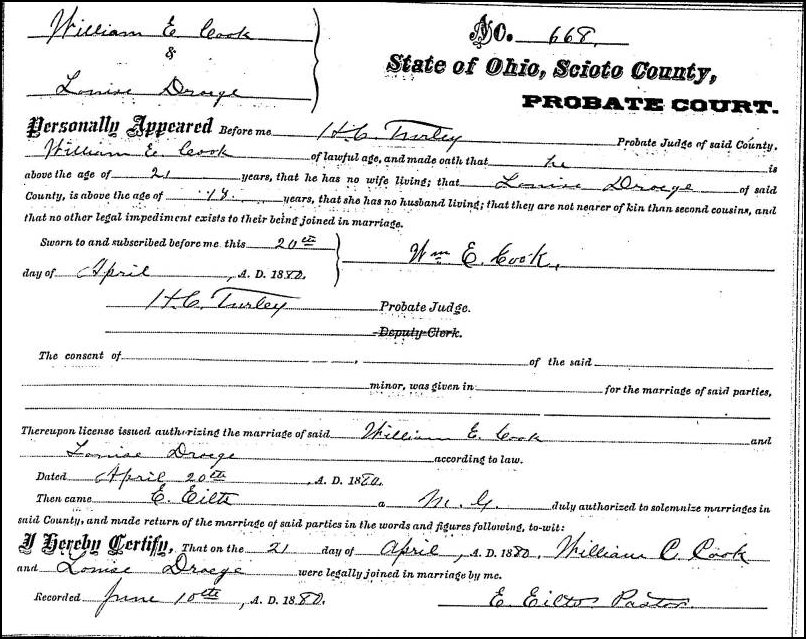 William E Cook
&
Louise Droege
No. 668.
State of Ohio, Scioto County,
PROBATE COURT.
Personally Appeared Before me H.C. Turley Probate Judge of said County.
William E Cook of lawful age, and made oath that he is
above the age of 21 years, that he has no wife living; that Louise Droege of said
County, is above the age of 18 years, that she has no husband living; that they are not nearer of kin than second cousins, and
that no other legal impediment exists to their being joined in marriage.
Sworn to and subscribed before me this 20th
day of April, A. D. 1880.
Wm E. Cook,
H.C. Turley Probate Judge.
Deputy Clerk.
The consent of of the said
minor, was given in for the marriage of said parties,
Thereupon license issued authorizing the marriage of said William E. Cook and
Louise Droege according to law.
Dated April 20th, A. D. 1880.
Then came E. a M. G. duly authorized to solemnize marriages in
said County, and made return of the marriage of said parties in the words and figures following, to-wit:
I Hereby Certify, That on the 21 day of April, A. D. 1880, William C. Cook
and Louise Droege were legally joined in marriage by me.
Recorded June 10th, A. D. 1880.
E. Pastor